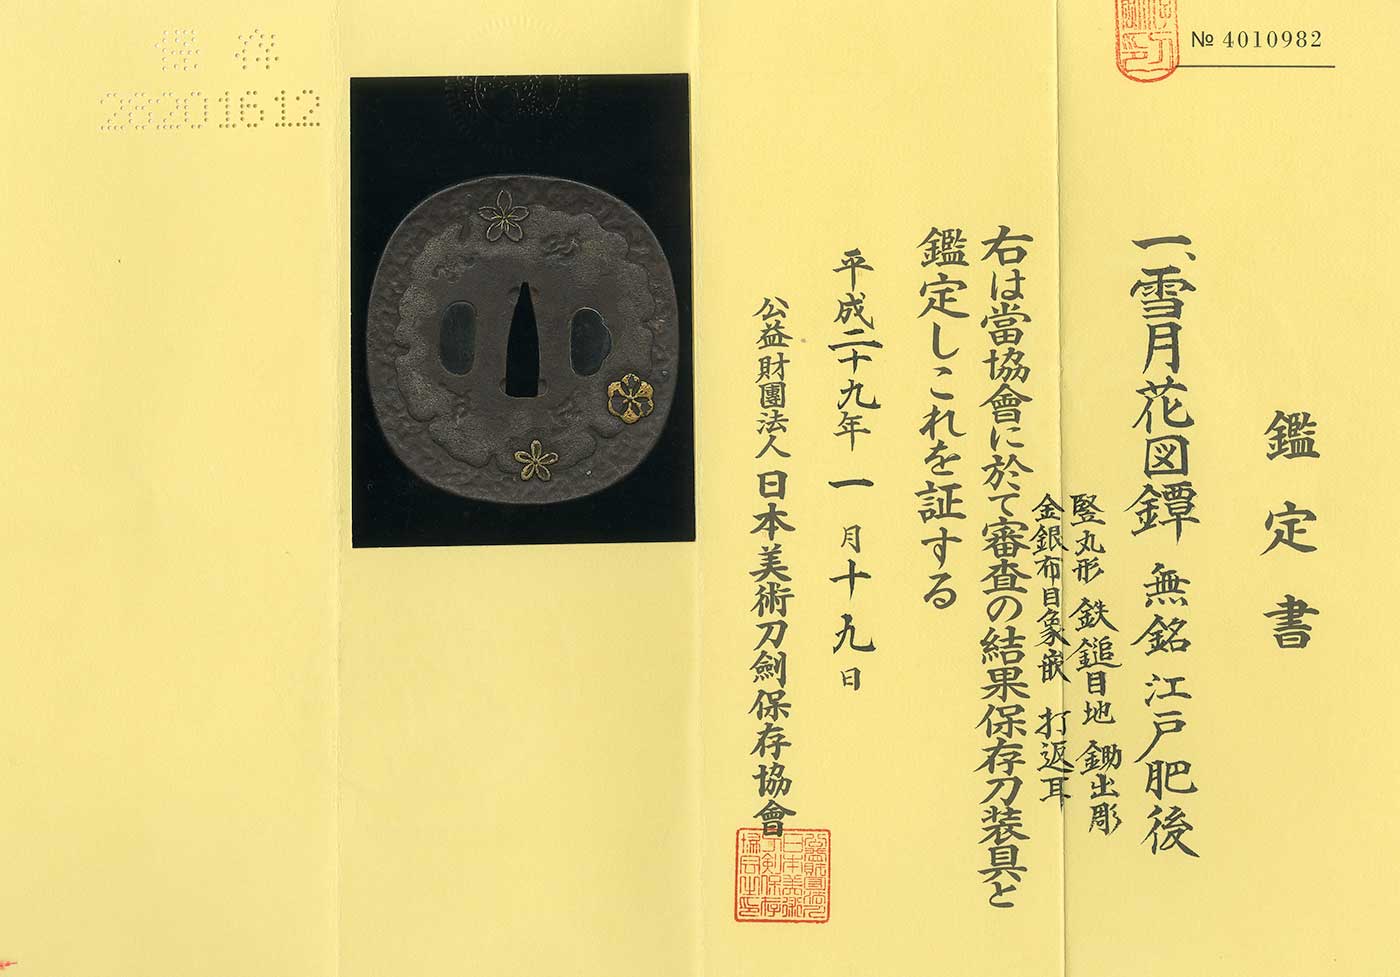 № 4010982
鑑定書
一、雪月花図鐔 無銘 江戸肥後
竪丸形 鉄鎚目地 鋤出彫
金銀布目象嵌 打返耳
右は當協會に於て審査の結果保存刀装具と
鑑定しこれを証する
平成二十九年一月十九日
公益財團法人 日本美術刀劍保存協會
保存
28201612